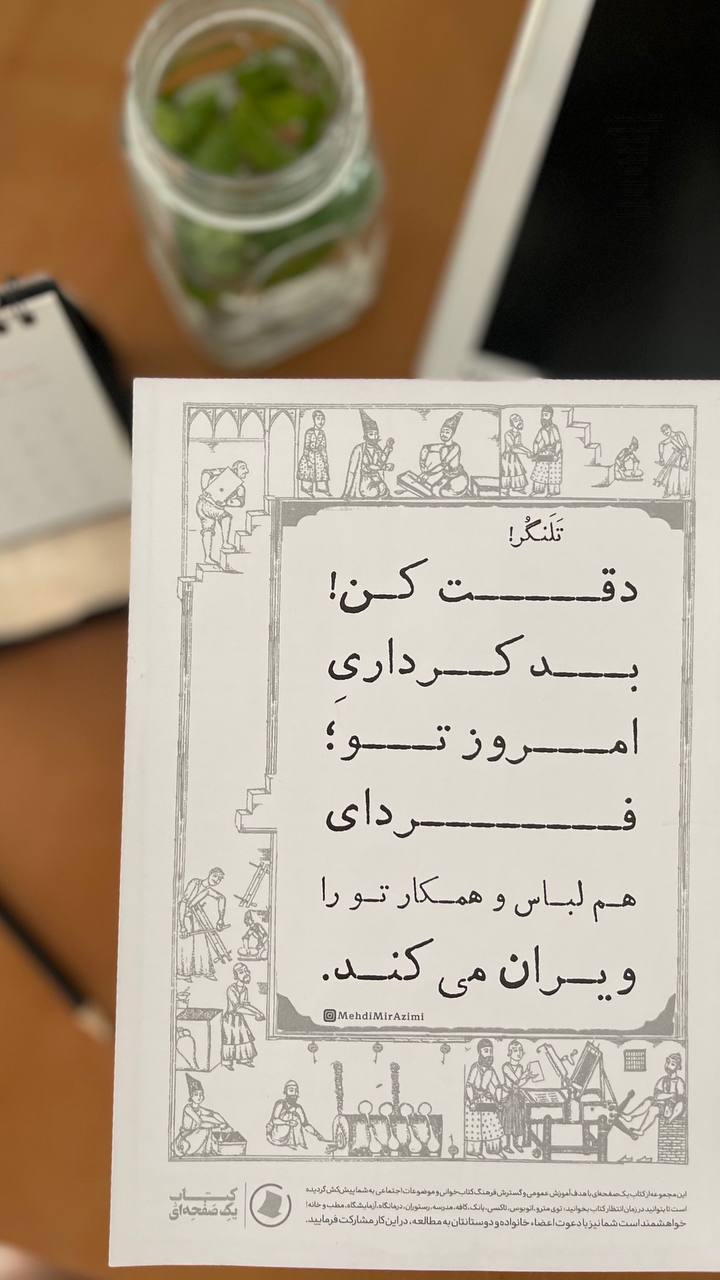 تَلَنگُر!
دقت کن!
بد کرداریِ
امروز تو؛
فردای
هم لباس و همکار تو را
ویران می کند.
MehdiMirAzimi
این مجموعه از کتاب یک صفحه‌ای با هدف آموزش عمومی و گسترش فرهنگ کتاب‌خوانی و موضوعات اجتماعی به شما پیش‌کش گردیده
است تا بتوانید در زمان انتظار کتاب بخوانید؛ توی مترو، اتوبوس، تاکسی، بانک، کافه، مدرسه، رستوران، درمانگاه، آزمایشگاه، مطب و خانه!
خواهشمند است شما نیز با دعوت اعضاء خانواده و دوستانتان به مطالعه، در این کار مشارکت فرمایید.
کتاب
یک صفحه‌ای